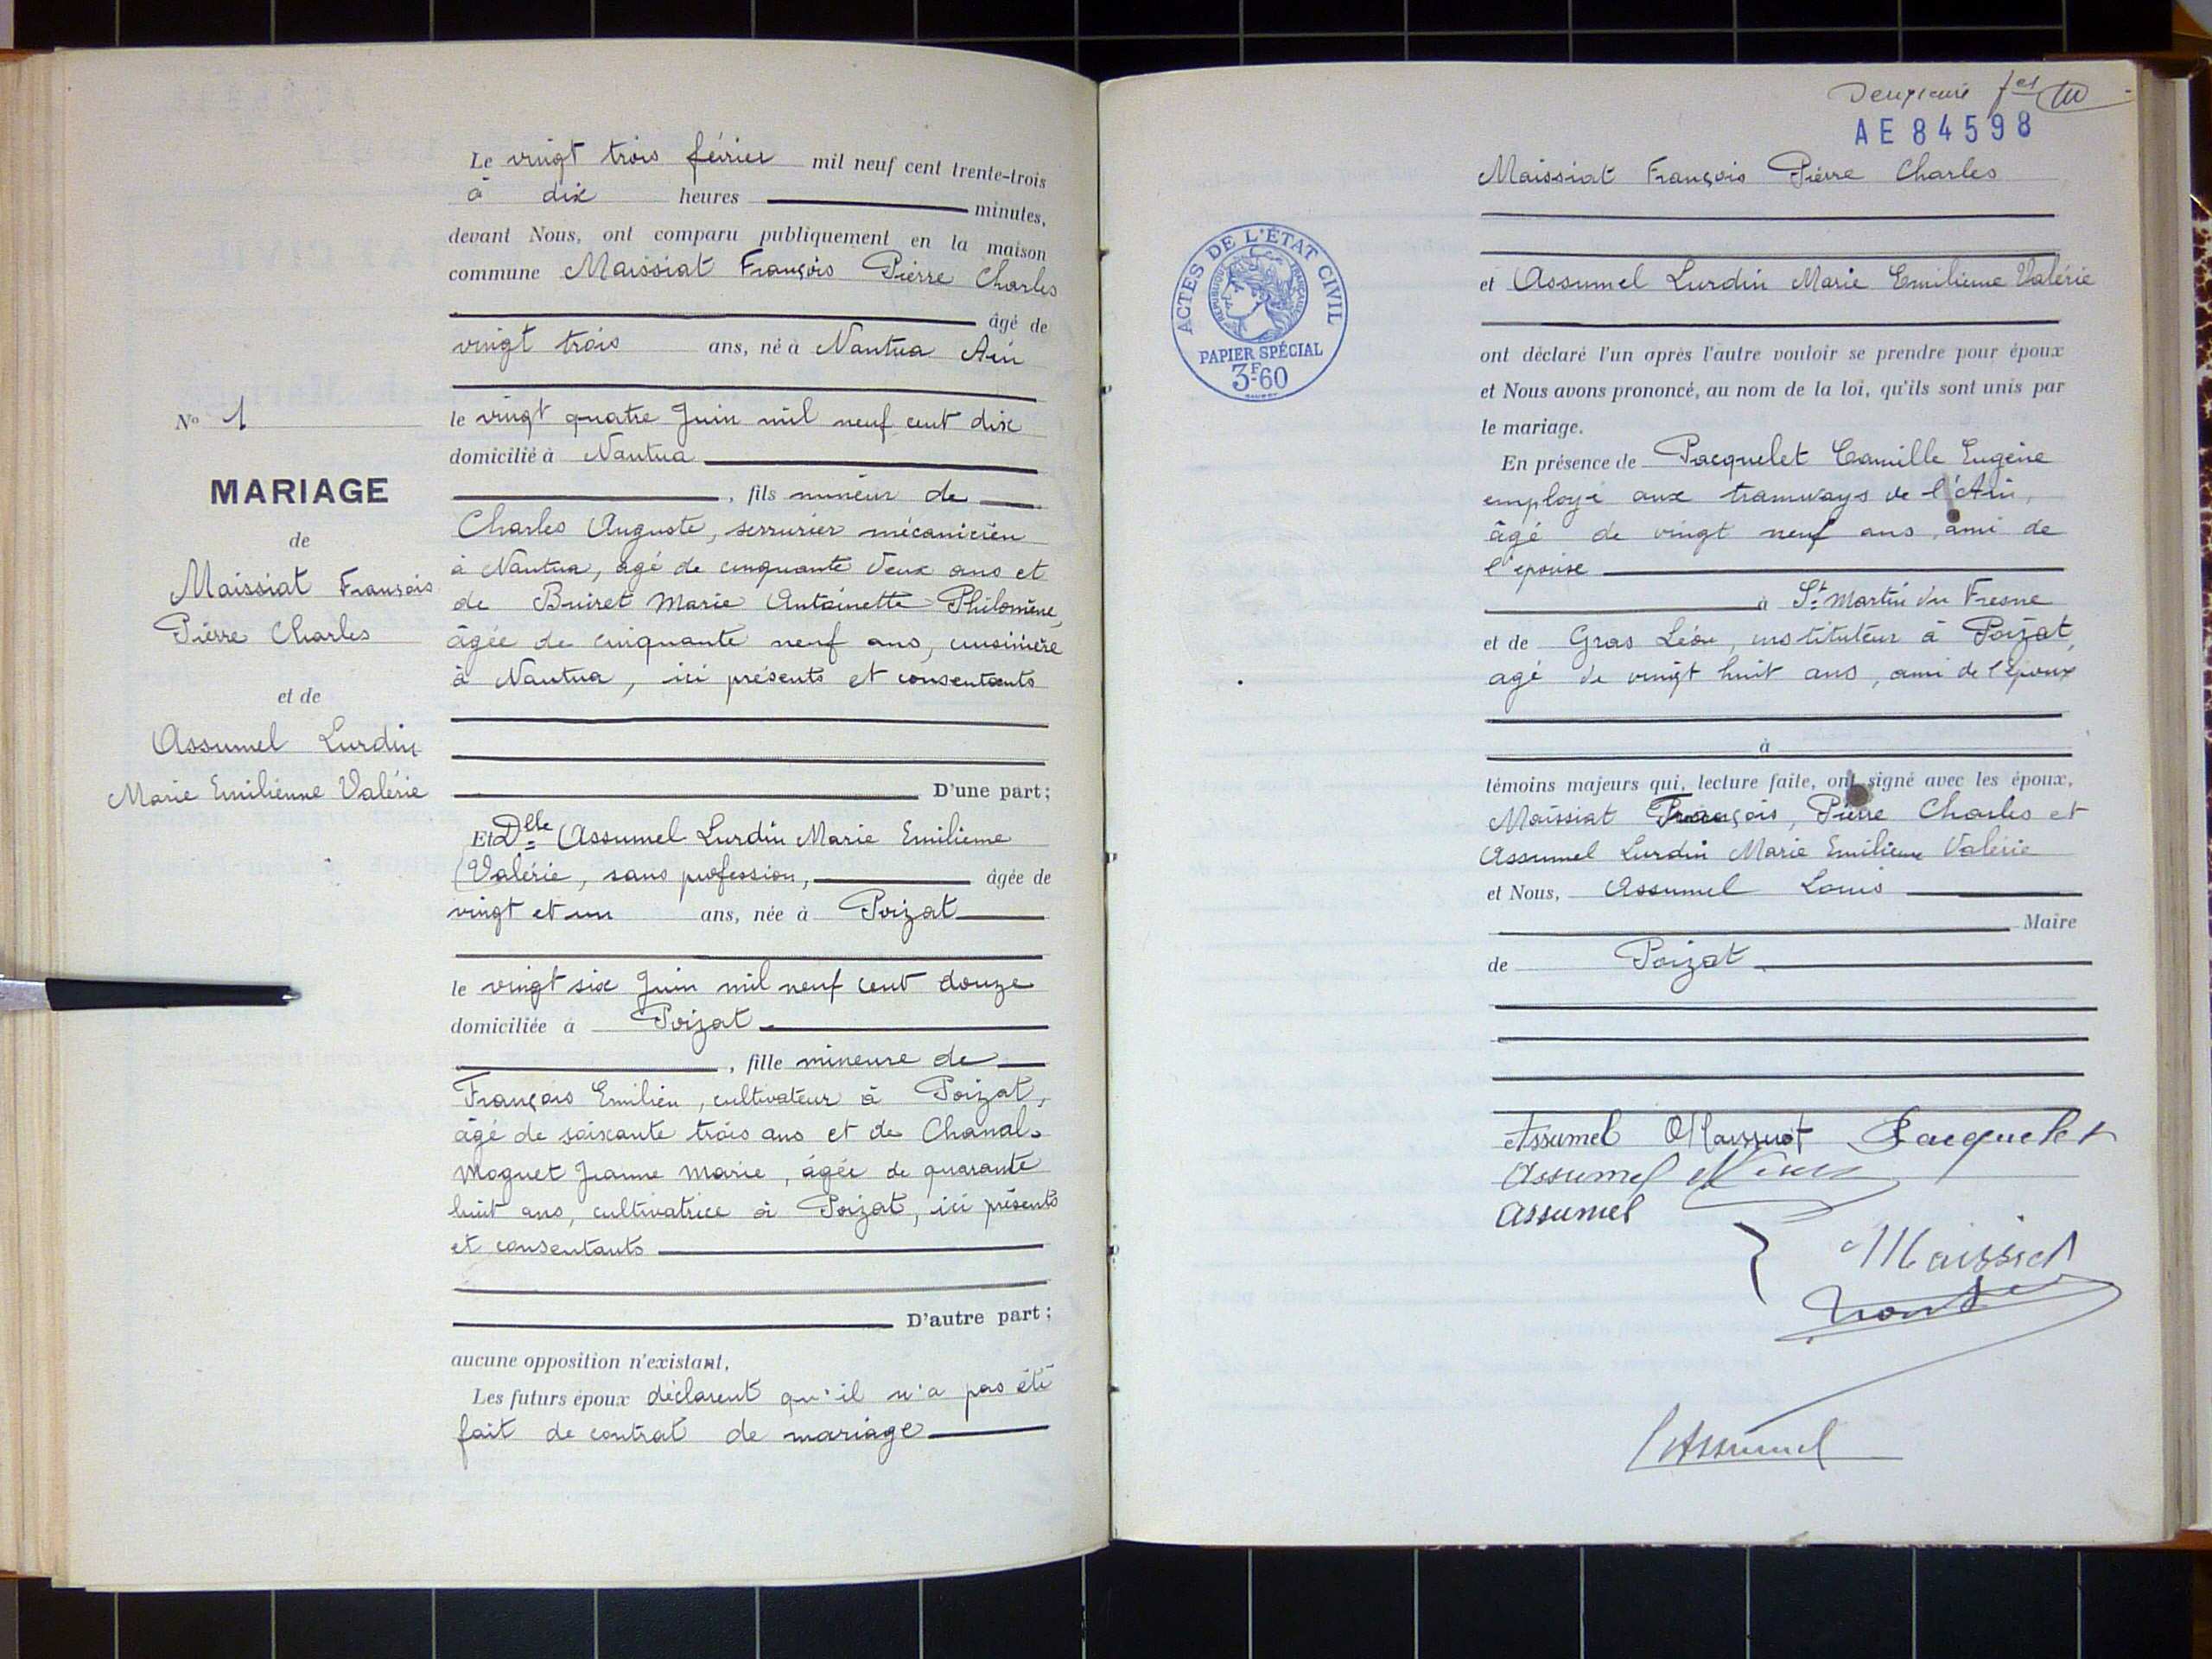 Le vingt trois février mil neuf cent trente-trois
à dix heures minutes,
devant Nous, ont comparu publiquement en la maison
commune Maissiat François Pierre Charles
âgé de
vingt trois ans, né à Nantua Ain
le vingt quatre Juin mil neuf cent dix
domicilié à Nantua
, fils mineur de
Charles Auguste, serrurier mécanicien
à Nantua, âgé de cinquante deux ans et
de Buiret Marie Antoinette Philomène,
âgée de cinquante neuf ans, cuisinière
à Nantua, ici présents et consentants
D'une part;
No 1
MARIAGE
de
Maissiat François
Pierre Charles
et de
Assumel Lurdin
Marie Emilienne Valérie
Et Dlle Assumel Lurdin Marie Emilienne
Valérie, sans profession, âgée de
vingt et un ans, née à Poizat
le vingt six Juin mil neuf cent douze
domiciliée à Poizat
, fille mineure de
François Emilien, cultivateur à Poizat,
âgé de soixante trois ans et de Chanal-
Moguet Jeanne Marie, âgée de quarante
huit ans, cultivatrice à Poizat, ici présents
et consentants
D'autre part;
aucune opposition n'existant,
Les futurs époux déclarent qu'il n'a pas été
fait de contrat de mariage
Deuxième
AE 84598
ACTES DE L'ÉTAT CIVIL
RÉPUBLIQUE FRANÇAISE
PAPIER SPÉCIAL
3F60
Maissiat François Pierre Charles
et Assumel Lurdin Marie Emilienne Valérie
ont déclaré l'un après l'autre vouloir se prendre pour époux
et Nous avons prononcé, au nom de la loi, qu'ils sont unis par
le mariage.
En présence de Pacquelet Camille Eugène
employé aux tramways de l'Ain,
âgé de vingt neuf ans, ami de
l'épouse
à St Martin du Fresne
et de Gras Léon, instituteur à Poizat,
agé de vingt huit ans, ami de l'époux
à
témoins majeurs qui, lecture faite, ont signé avec les époux,
Maissiat François, Pierre Charles et
Assumel Lurdin Marie Emilienne Valérie
et Nous, Assumel Louis
Maire
de Poizat
Assumel Maissiat Pacquelet
Assumel
Assumel
Maissiat
Assumel